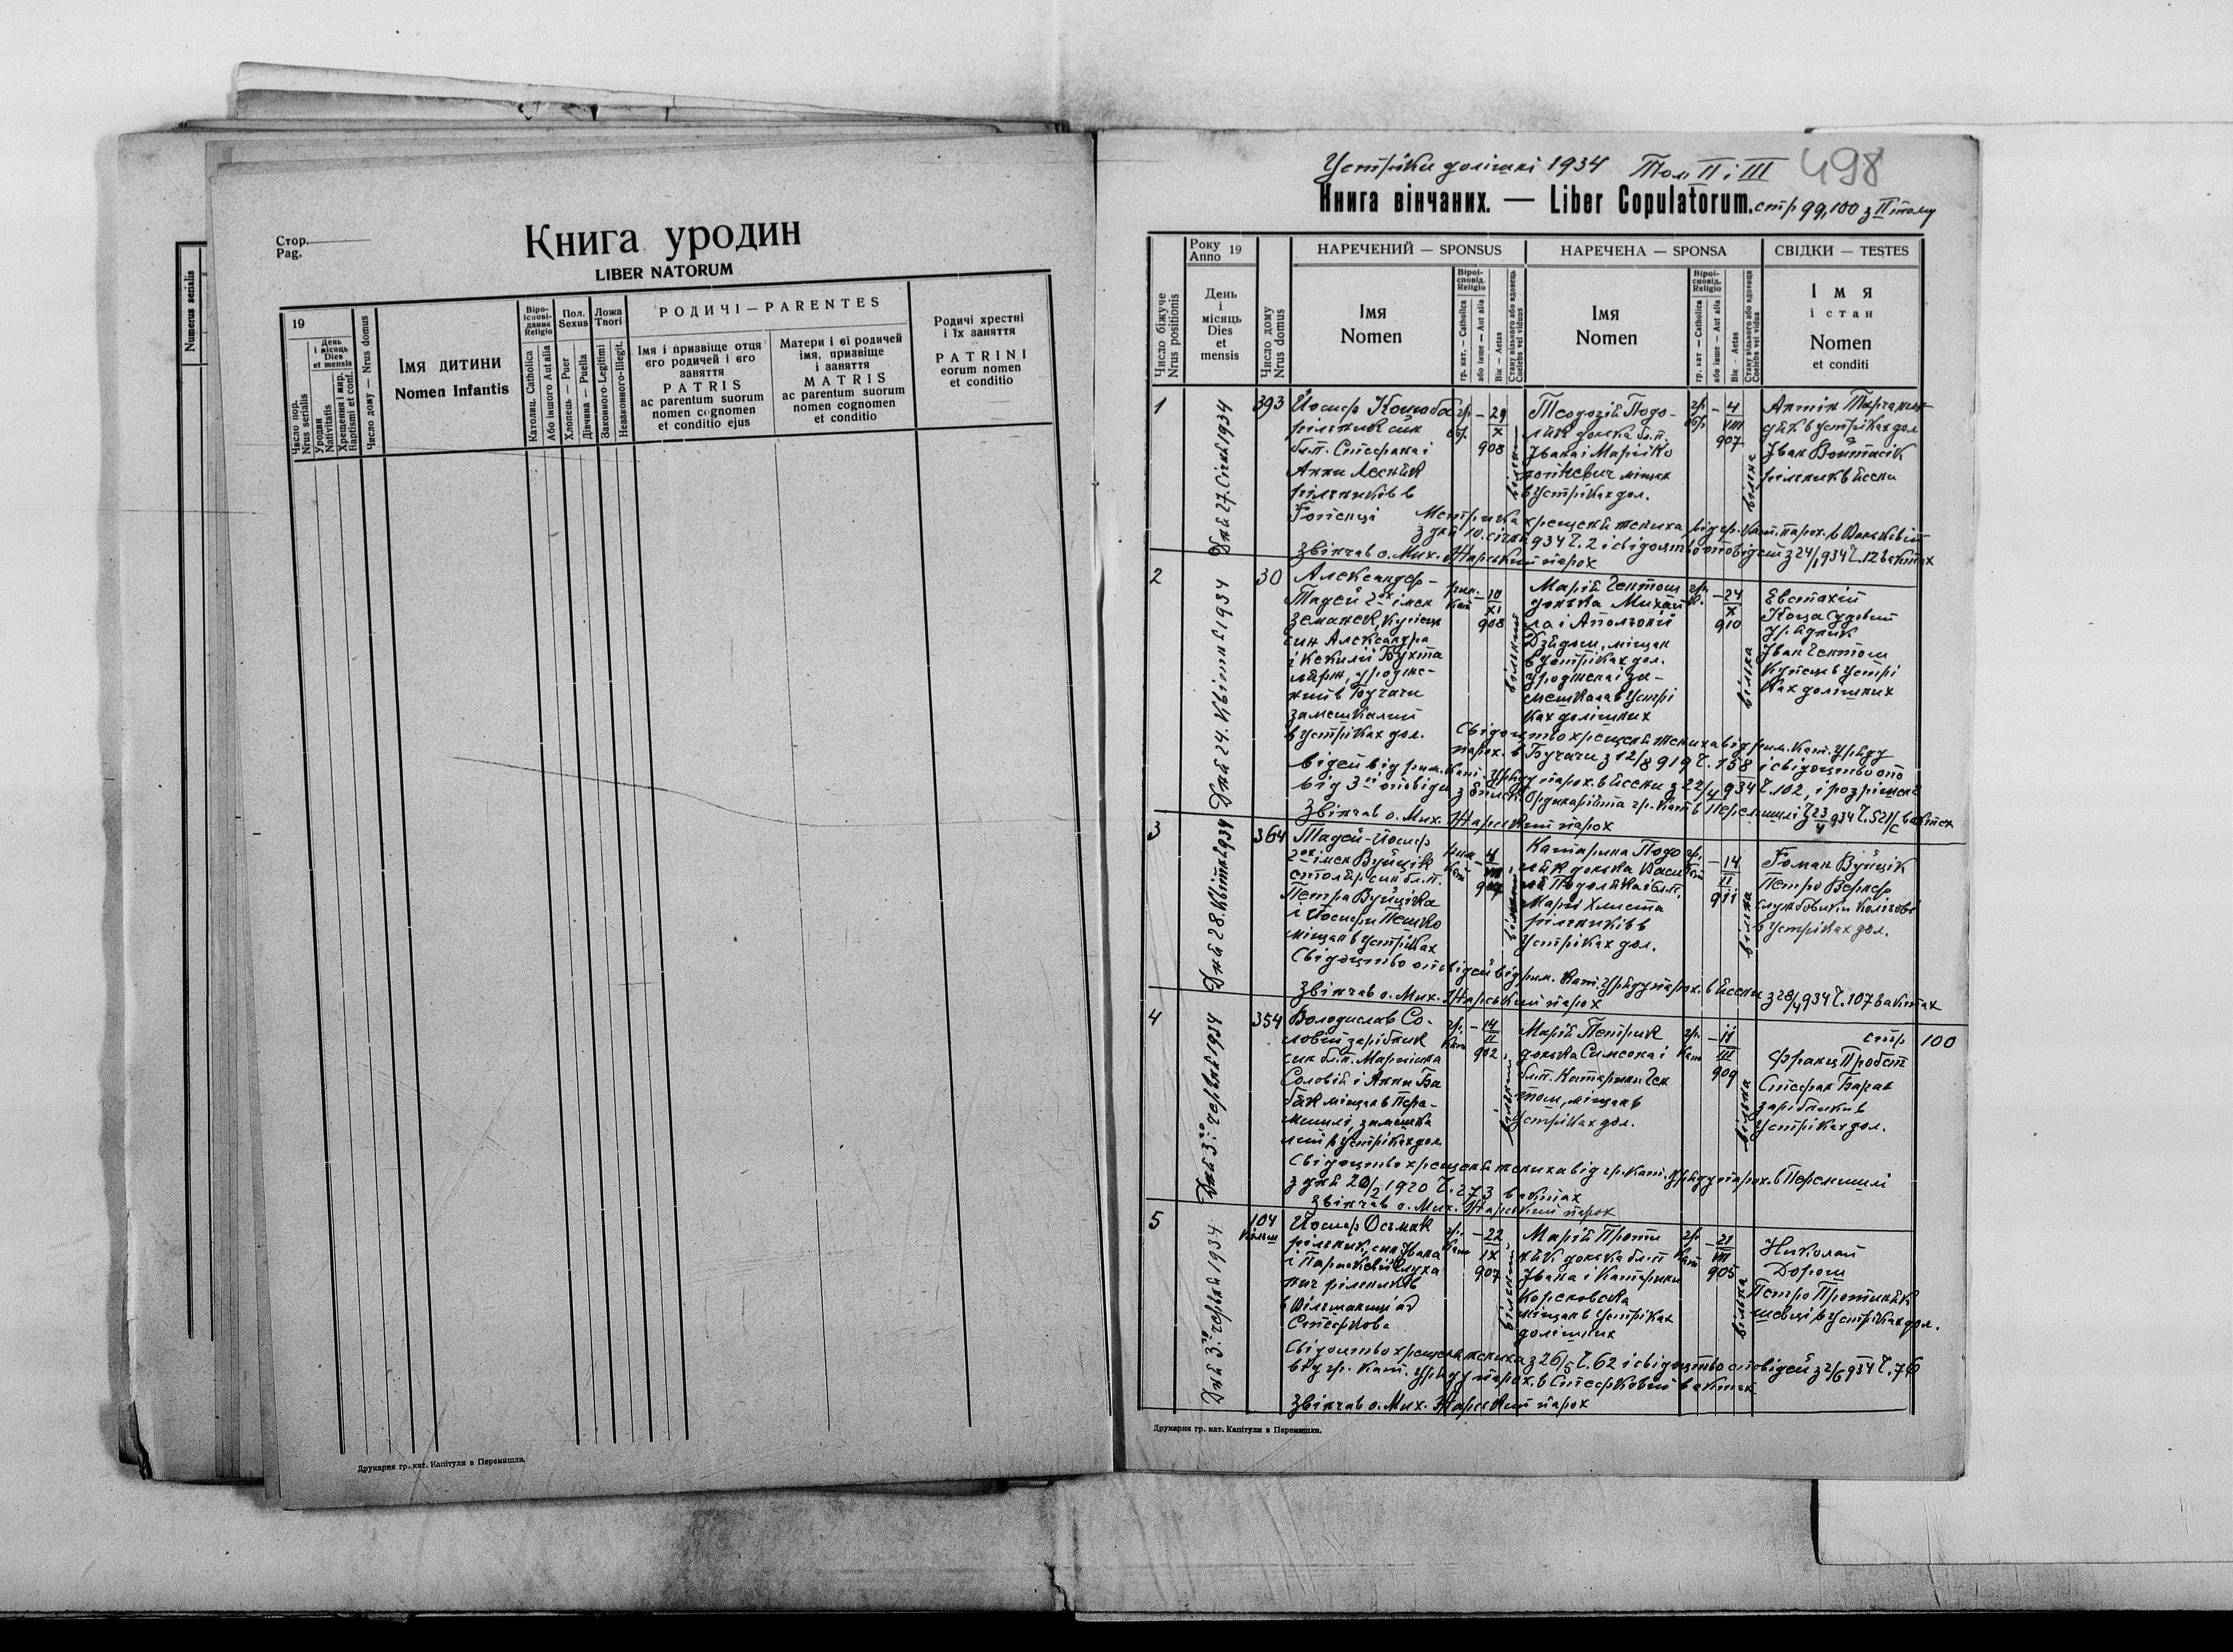 Numerus serialis
Стор.
Pag.
Книга уродин
LIBER NATORUM
19
Число пор.
Nrus serialis
День
і місяць
Dies
et mensis
Уродин
Nativitatis
Хрещення і мир.
Baptismi et conf.
Число дому — Nrus domus
Імя дитини
Nomen Infantis
Віро-
ісповідание
Religio
Католиц. Catholica
Або іншого Aut alia
Пол.
Sexus
Хлопець — Puer
Дівчина — Puella
Ложа
Thori
Законного-Legitimi
Незаконного-Illegit.
РОДИЧІ — PARENTES
Імя і призвіще отця
єго родичей і єго
заняття
PATRIS
ac parentum suorum
nomen cognomen
et conditio ejus
Матери і єї родичей
імя, призвіще
і заняття
MATRIS
ac parentum suorum
nomen cognomen
et conditio
Родичі хрестні
і їх заняття
PATRINI
eorum nomen
et conditio
Друкарня гр. кат. Капітули в Перемишли.
Устріки долішні 1934 Том II і III 498
Книга вінчаних. — Liber Copulatorum. стр 99, 100 з II тому
Число біжуче
Nrus positionis
Року
Anno 19
День
і
місяць
Dies
et
mensis
Число дому
Nrus domus
НАРЕЧЕНИЙ — SPONSUS
Імя
Nomen
Віроі-
сповід.
Religio
гр. кат. — Catholica
або інше — Aut alia
Вік — Aetas
Стану вільного або вдовець
Coelebs vel viduus
НАРЕЧЕНА — SPONSA
Імя
Nomen
Віроі-
сповід.
Religio
гр. кат — Catholica
або інше — Aut alia
Вік — Aetas
Стану вільного або вдовиця
Coelebs vel vidua
СВІДКИ — TESTES
Імя
і стан
Nomen
et conditi
1
Дня 27. Січня 1934
393
Йосиф
рільник син
бл.п. Стефана і
Анни Лесняк
рільників в
вільний
29
X
908
Теодозія Подо-
ляк донька бл.п.
Івана і Марії Ко
міщан
в Устріках дол.
4
VIII
907
вільна
Антін
в Устріках дол
Іван Войтасік
рільник в Ясени
Метрика хрещеня жениха від гр. кат. парох. в
з дня 10. січня 934 Ч. 2 і свідоцтво оповідей з 24/1 934 Ч. 12 в актах
Звінчав о. Мих. парох
2
Дня 24. Квітня 1934
30
Александер-
Тадей 2ох імен
Земанек, купець
син Александра
і Кекилії Бухта
лярж, уродже-
ний в Бучачи
замешкалий
в Устріках дол.
рим.
кат
10
XI
908
вільний
Марія Чентош
донька Михай
ла і Аполонії
Дзядош, міщан
в Устріках дол.
уроджена і за-
мешкала в Устрі
ках долішних
24
X
910
вільна
Евстахій
Коца судовий
урядник
Іван Чентош
купець в Устрі
ках долішних
Свідоцтво хрещеня жениха від рим. кат. Уряду
парох. в Бучачи з 12/8 919 Ч. 158 і свідоцтво опо
відей від рим. кат. Уряду парох. в Ясени з 22/4 934 Ч. 102, і розрішенє
від 3ої оповіди з Ординаріята гр. кат. в Перемишлі з 23/4 934 Ч. 521/с в актах
Звінчав о. Мих. парох
3
Дня 28. Квітня 1934
364
Тадей-Йосиф
2ох імен Вуйцік
столяр син бл.п.
Петра Вуйціка
і Йосифи Пешко
міщан в Устріках
рим.
кат
вільний
Катарина Подо
ляк донька Васи
ля Подоляка і бл.п.
Марії Хмиста
рільників в
Устріках дол.
гр.
кат
14
II
911
вільна
Роман Вуйцік
Петро Вернер
в Устріках дол.
Свідоцтво оповідей від рим. кат. Уряду парох. в Ясени з 28/4 934 Ч. 107 в актах
Звінчав о. Мих. парох
4
Дня 3го червня 1934
354
Володислав Со-
ловій зарібник
син бл.п. Мартина
Соловій і Анни Ба
бяк міщан в Пере-
мишлі, замешка
лий в Устріках дол.
гр.
кат
14
II
902
вільний
Марія Петрик
донька Симеона і
бл.п. Катарини Чен
тош, міщан в
Устріках дол.
гр.
кат
11
III
909
вільна
стр 100
Франц Пробст
Стефан Баран
зарібники в
Устріках дол.
Свідоцтво хрещеня жениха від гр. кат. Уряду парох. в Перемишлі
з дня 20/2 1920 Ч. 273 в актах
Звінчав о. Мих. парох
5
Дня 3го червня 1934
104
Йосиф Осьмак
рільник, син Івана
і Параскевії
рільників
ад
гр.
кат
22
IX
907
вільний
Марія Проти
няк донька бл.п
Івана і Катарини
міщан в Устріках
долішних
гр.
кат
21
VIII
905
вільна
Николай
Дорош
Петро Протиняк
в Устріках дол.
Свідоцтво хрещеня жениха з 26/5 Ч. 62 і свідоцтво оповідей з 2/6 934 Ч. 76
від гр. кат. Уряду парох. в Стефковій в актах
Звінчав о. Мих. парох
Друкарня гр. кат. Капітули в Перемишли.